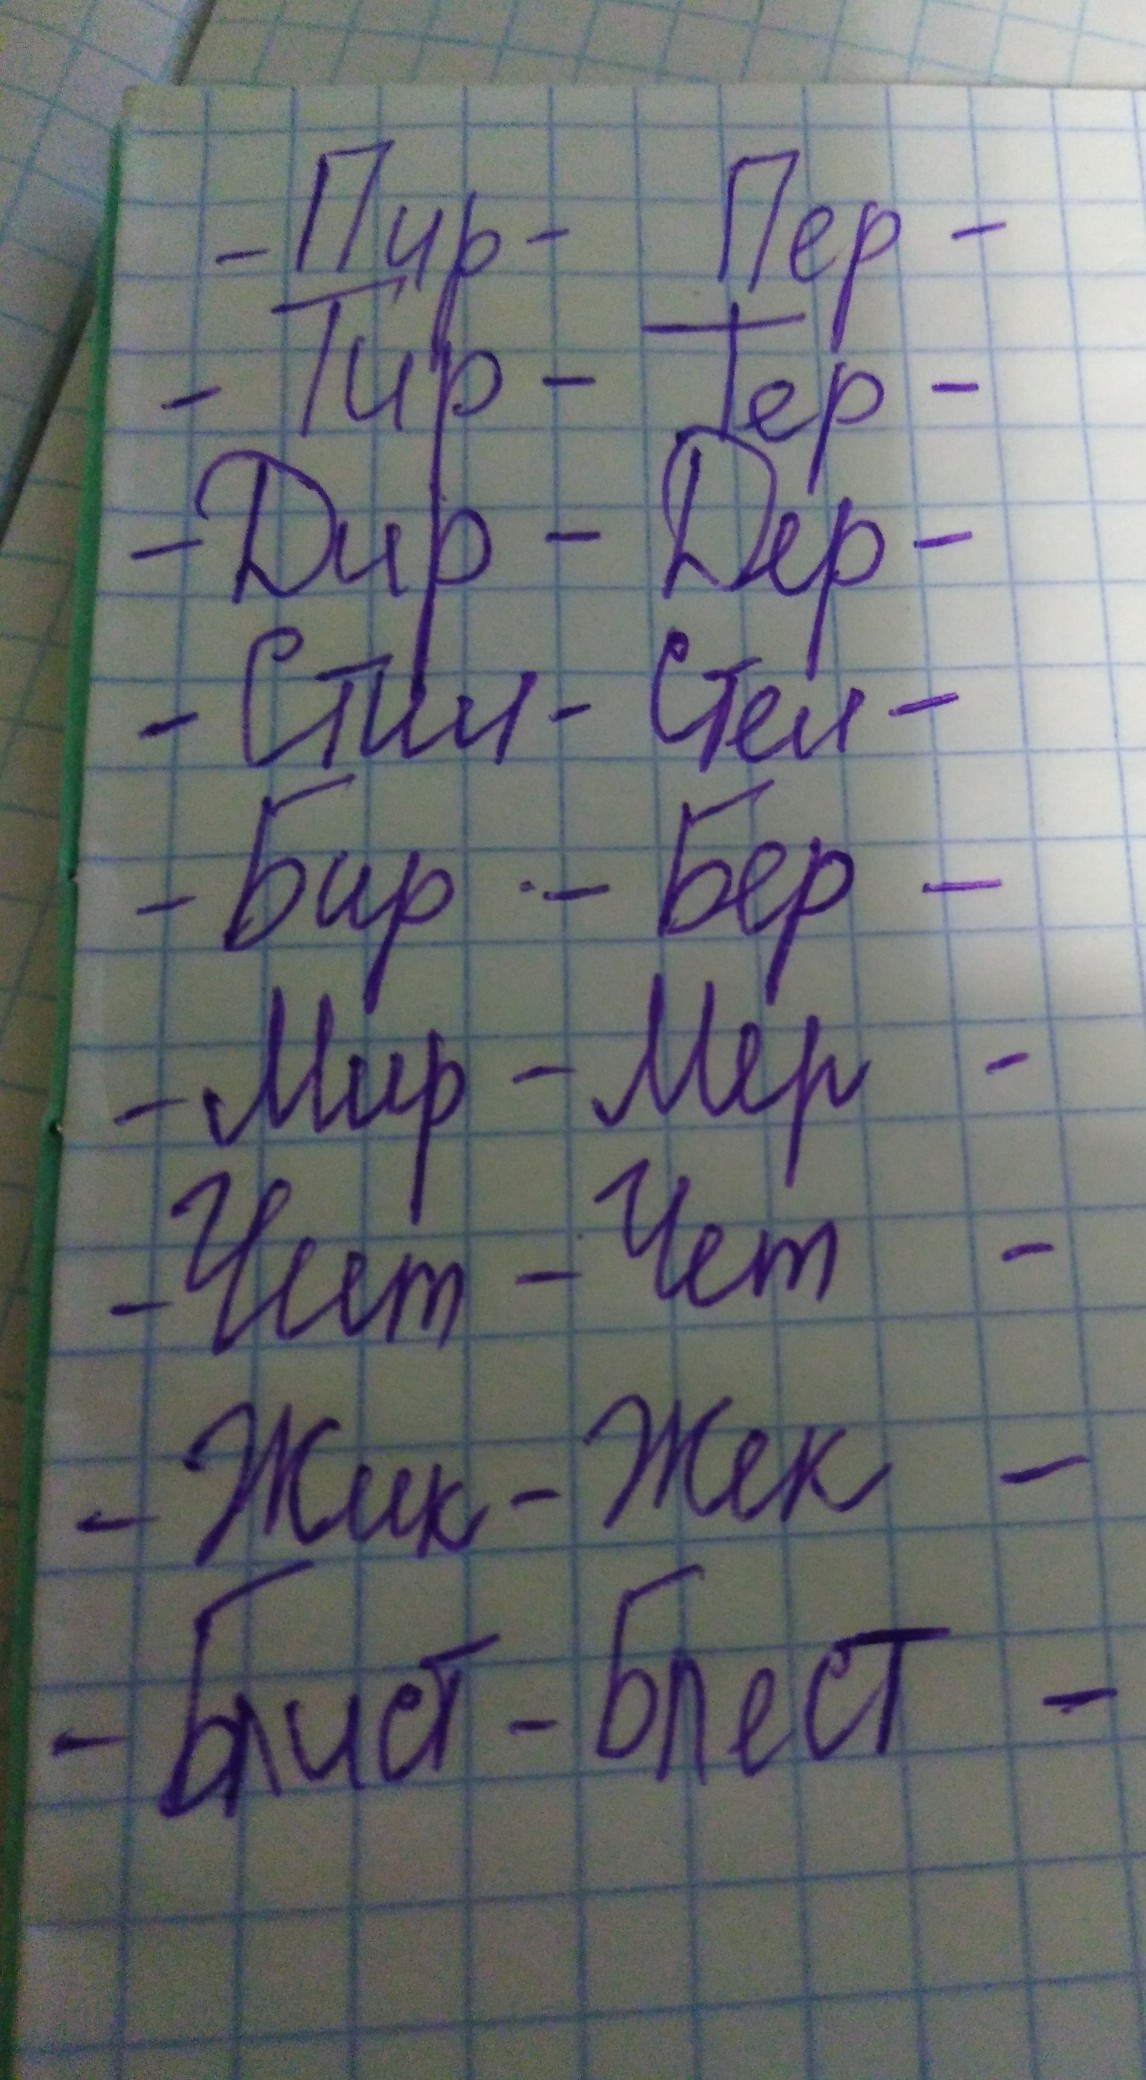 - Пир - Пер -
- Тир - Тер -
- Дир - Дер -
- Стил - Стел -
- Бир - Бер -
- Мир - Мер -
- Чит - Чет -
- Жик - Жек -
- Блист - Блест -